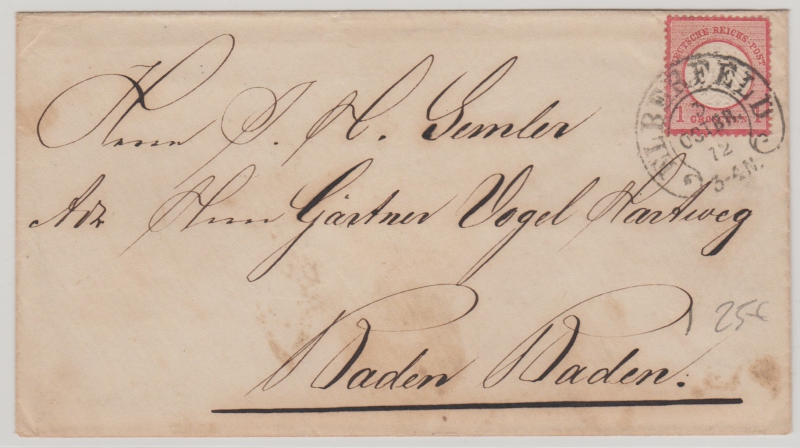 DEUTSCHE REICHS-POST
1 GROSCHEN 1
ELBERFELD
OCTBR
72
3-4N.
Herrn J. H. Semler
Adr Herrn Gärtner Vogel Hartweg
Baden Baden.
25€